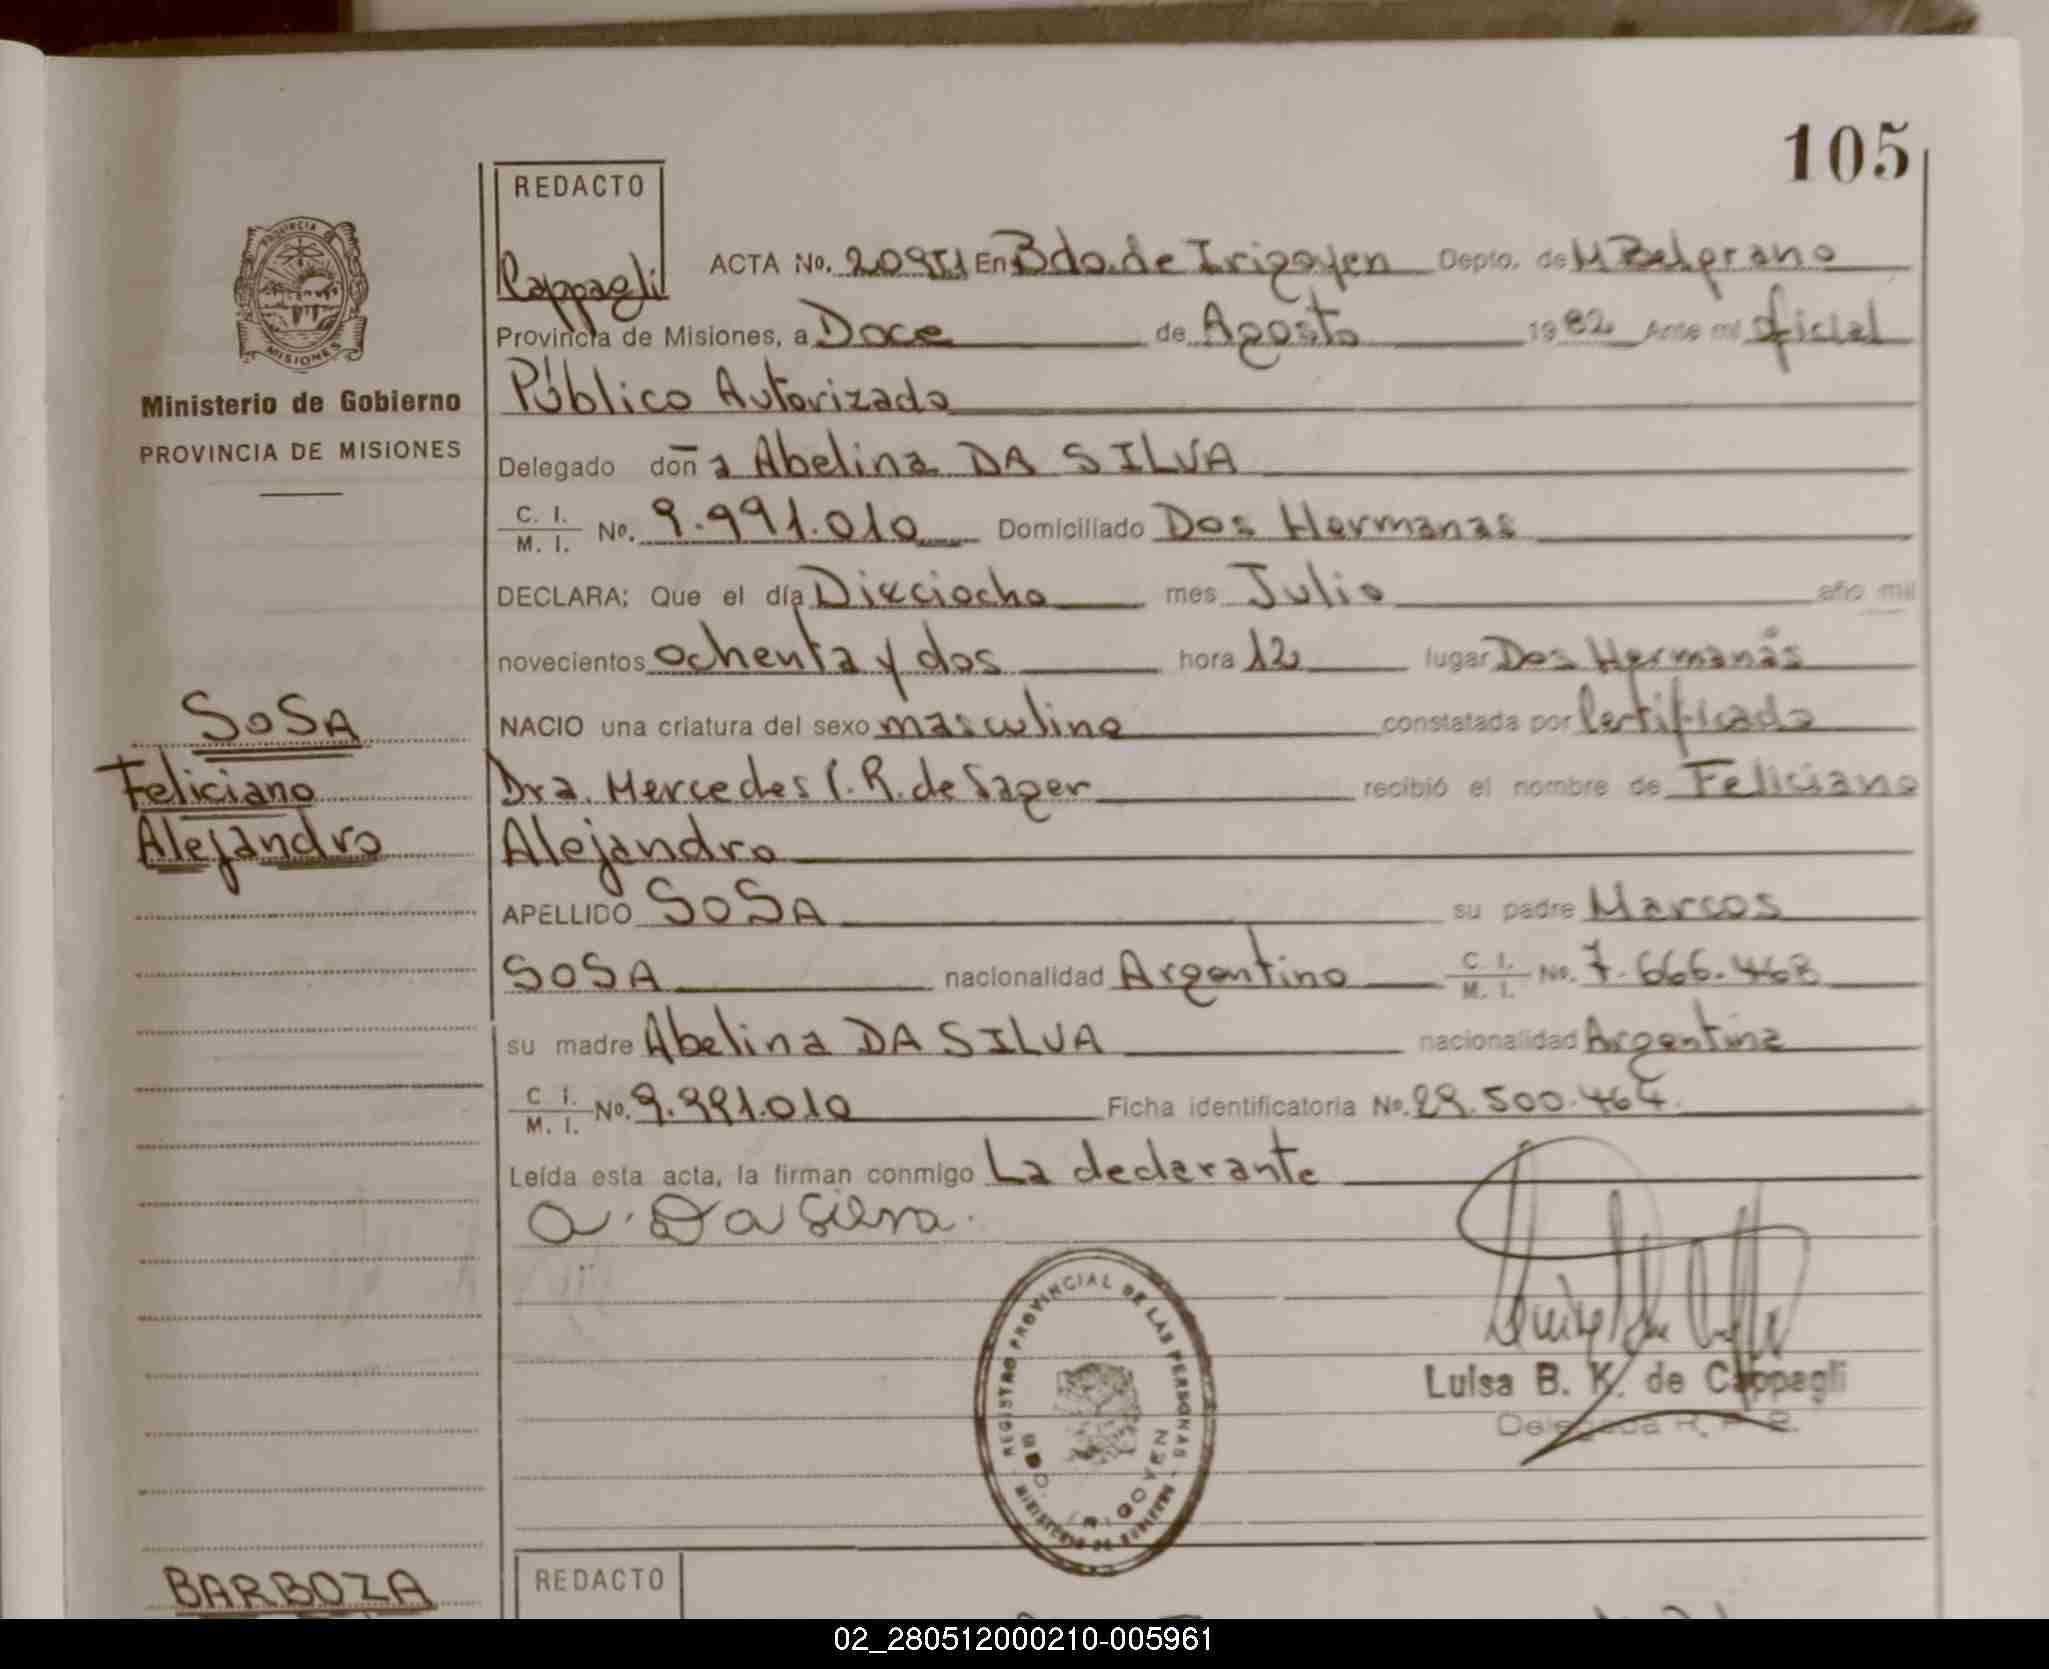 105
REDACTO
Cappagli
ACTA No. En Bdo. de Irigoyen Depto. de M Belgrano
Provincia de Misiones, a Doce de Agosto 1982 Ante mi Oficial
Público Autorizado
Delegado doña Abelina DA SILVA
C. I. M. I. No. 9.991.010 Domiciliado Dos Hermanas
DECLARA; Que el día Dieciocho mes Julio año mil
novecientos ochenta y dos hora 12 lugar Dos Hermanas
NACIO una criatura del sexo masculino constatada por Certificado
Dra. Mercedes C. R. de Sager recibió el nombre de Feliciano
Alejandro
APELLIDO SOSA su padre Marcos
SOSA nacionalidad Argentino C I. M. I. No. 7.666.468
su madre Abelina DA SILVA nacionalidad Argentina
C I. M. I. No. 9.991.010 Ficha identificatoria No. 29.500.464
Leída esta acta, la firman conmigo La declarante
a. Da Silva.
Luisa B. K. de Cappagli
Delegada R. P. P.
REGISTRO PROVINCIAL DE LAS PERSONAS
MINISTERIO DE GOBIERNO
BDO. IRIGOYEN
PROVINCIA DE
MISIONES
Ministerio de Gobierno
PROVINCIA DE MISIONES
SOSA
Feliciano
Alejandro
BARBOZA
REDACTO
02_280512000210-005961